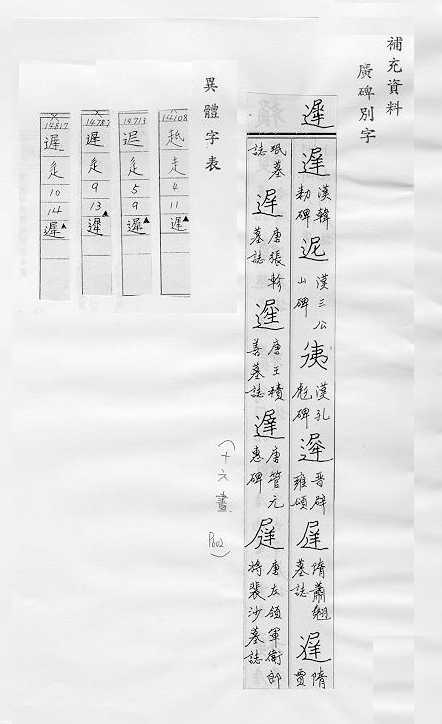 補充資料
廣碑別字
遲
遲 漢韓勑碑
迡 漢三公山碑
漢孔彪碑
遲 晋辟雍頌
隋蕭翹墓誌
遲 隋賈珉墓誌
遲 唐張軫墓誌
遲 唐王積善墓誌
遲 唐管元惠碑
唐左領軍衛郎將裴沙墓誌
(十六畫 P802)
異體字表
14108
走
4
11
遲▲
14713
迟
辵
5
9
遲▲
14787
遟
辵
9
13▲
遲
14817
遲
辵
10
14
遲▲